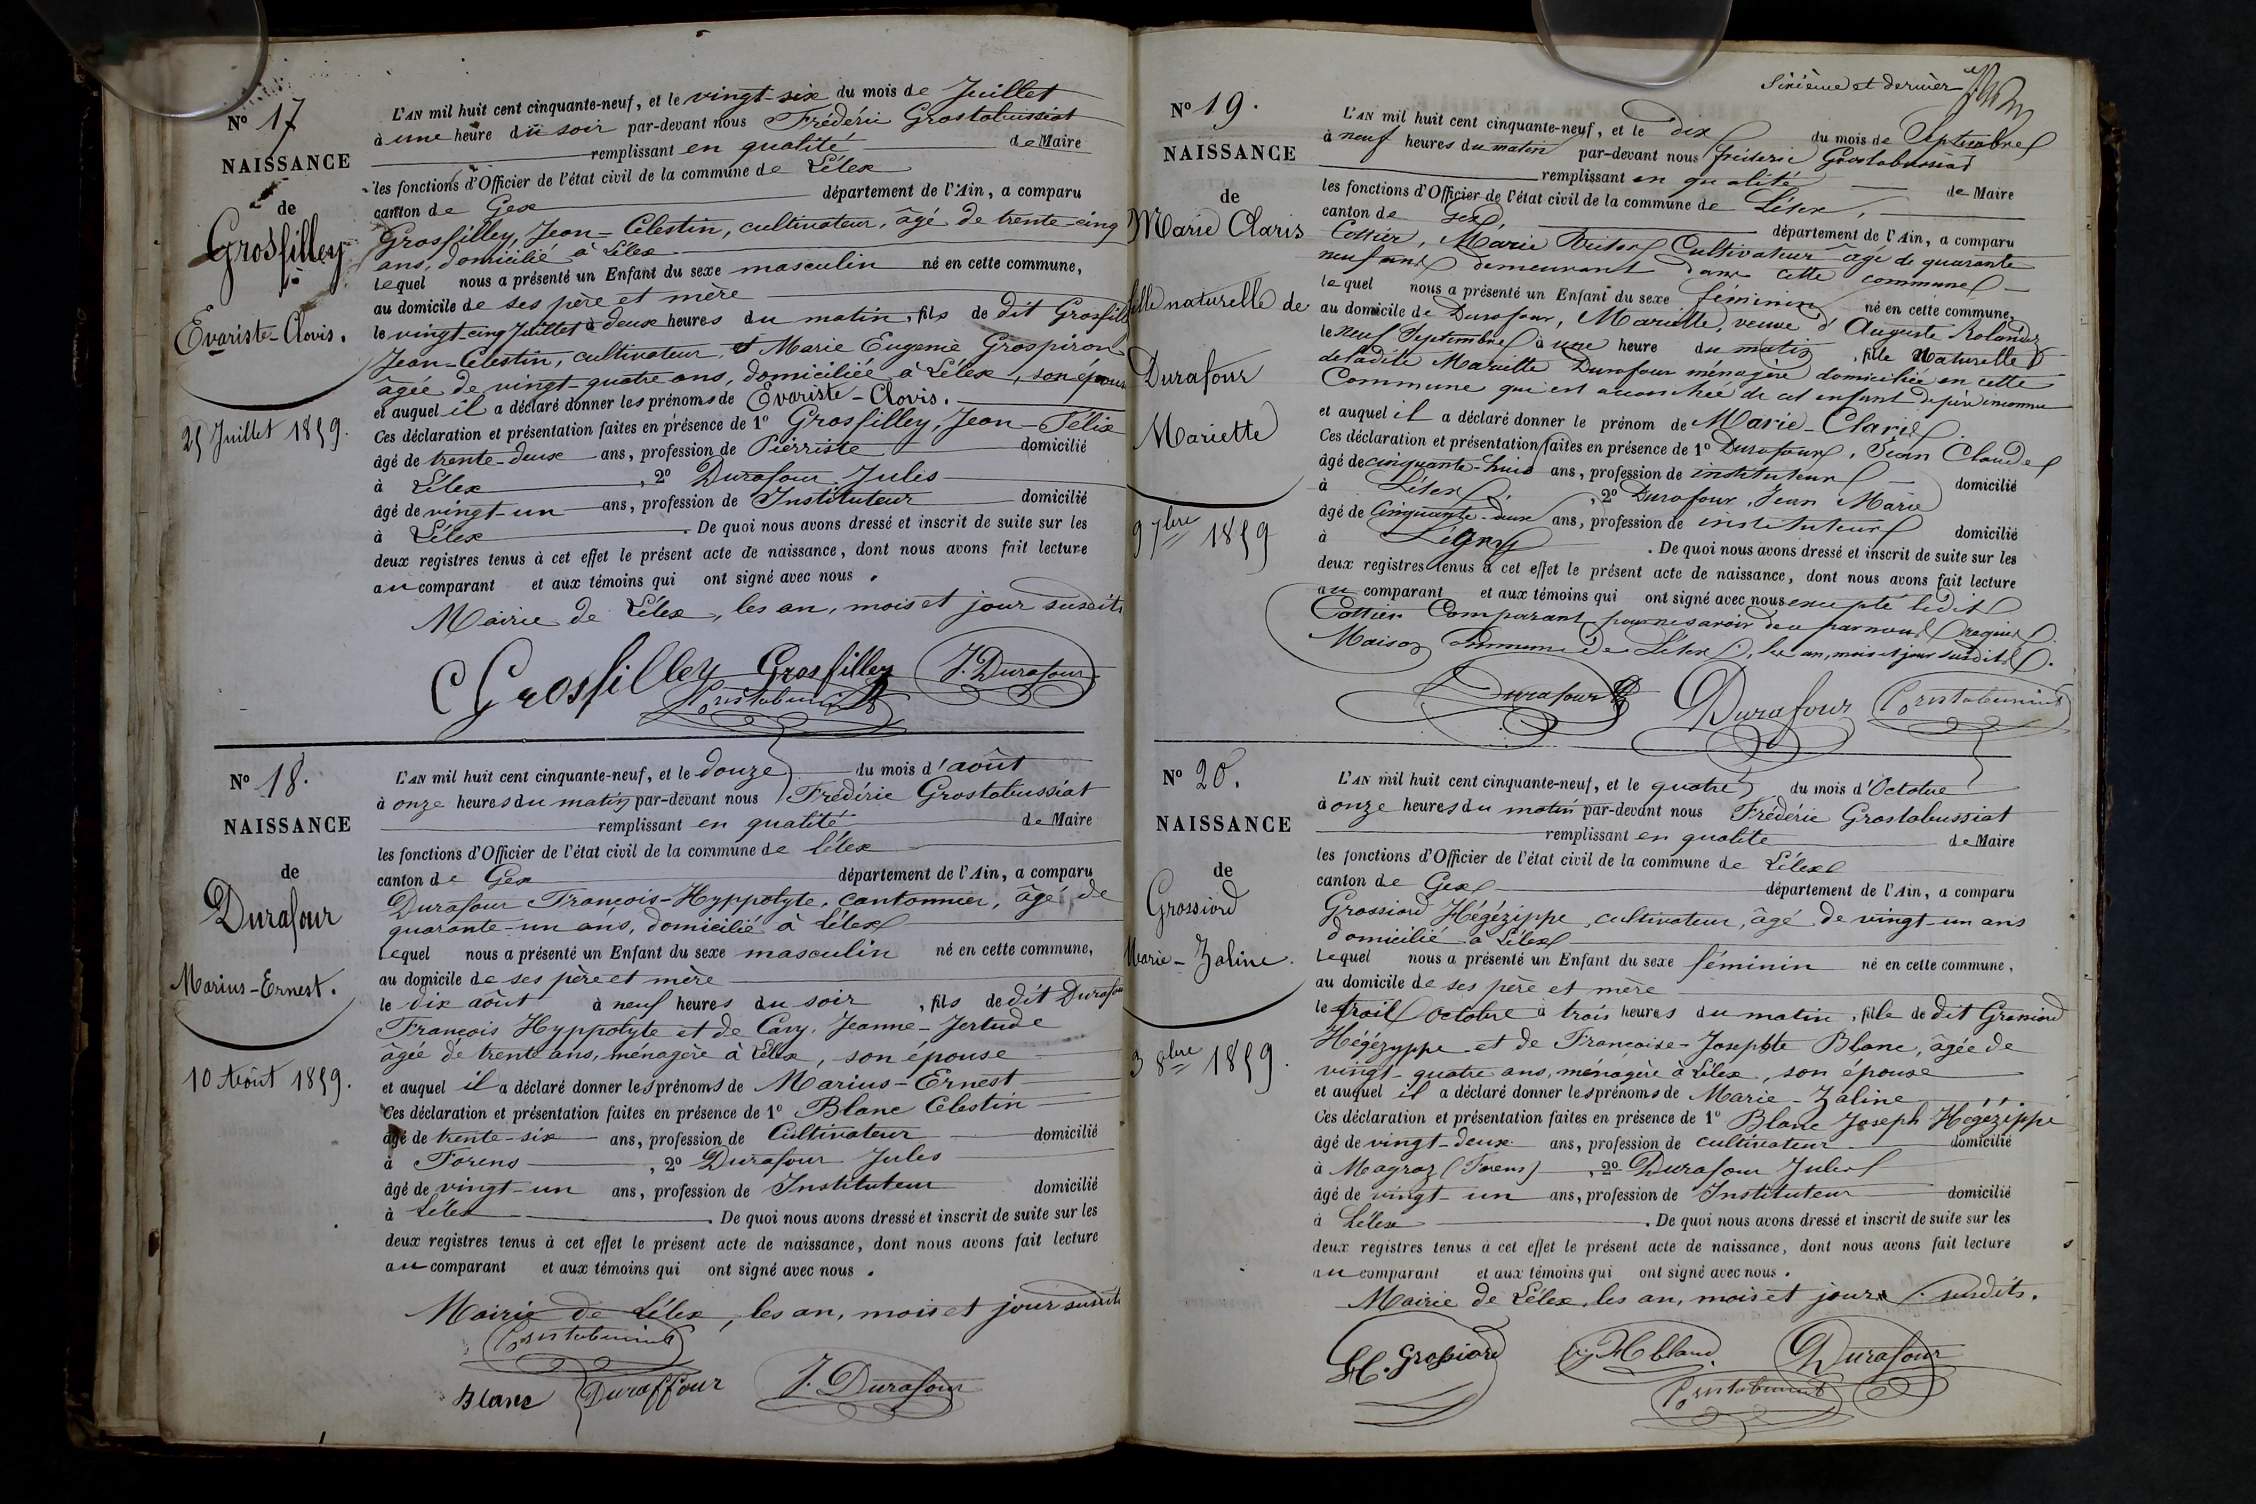 N° 17
NAISSANCE
de
Grosfilley
Evariste-Clovis.
25 Juillet 1859.
L'AN mil huit cent cinquante-neuf, et le vingt-six du mois de Juillet
à une heure du soir par-devant nous Frédéric Grostabussiat
remplissant en qualité de Maire
les fonctions d'Officier de l'état civil de la commune de Lélex
canton de Gex département de l'Ain, a comparu
Grosfilley, Jean-Célestin, cultivateur, âgé de trente-cinq
ans, domicilié à Lélex
lequel nous a présenté un Enfant du sexe masculin né en cette commune,
au domicile de ses père et mère
le vingt-cinq Juillet à deux heures du matin, fils de dit Grosfill
Jean-Célestin, cultivateur, et Marie Eugenie Grospiron
âgée de vingt-quatre ans, domiciliée à Lélex, son épouse
et auquel il a déclaré donner les prénoms de Evariste-Clovis.
Ces déclaration et présentation faites en présence de 1° Grosfilley, Jean-Félix
âgé de trente-deux ans, profession de Pierriste domicilié
à Lélex, 2° Durafour Jules
âgé de vingt-un ans, profession de Instituteur domicilié
à Lélex. De quoi nous avons dressé et inscrit de suite sur les
deux registres tenus à cet effet le présent acte de naissance, dont nous avons fait lecture
au comparant et aux témoins qui ont signé avec nous.
Mairie de Lélex, les an, mois et jour susdits
C Grosfilley Grosfilley J. Durafour
Grostabussiat
N° 18.
NAISSANCE
de
Durafour
Marius-Ernest.
10 Août 1859.
L'AN mil huit cent cinquante-neuf, et le douze du mois d'août
à onze heures du matin par-devant nous Frédéric Grostabussiat
remplissant en qualité de Maire
les fonctions d'Officier de l'état civil de la commune de Lélex
canton de Gex département de l'Ain, a comparu
Durafour François-Hyppolyte, cantonnier, âgé de
quarante-un ans, domicilié à Lélex
lequel nous a présenté un Enfant du sexe masculin né en cette commune,
au domicile de ses père et mère
le dix août à neuf heures du soir, fils de dit Durafour
François Hyppolyte et de Cary, Jeanne-Jertude
âgée de trente ans, ménagère à Lélex, son épouse
et auquel il a déclaré donner les prénoms de Marius-Ernest
Ces déclaration et présentation faites en présence de 1° Blanc Célestin
âgé de trente-six ans, profession de Cultivateur domicilié
à Forens, 2° Durafour Jules
âgé de vingt-un ans, profession de Instituteur domicilié
à Lélex. De quoi nous avons dressé et inscrit de suite sur les
deux registres tenus à cet effet le présent acte de naissance, dont nous avons fait lecture
au comparant et aux témoins qui ont signé avec nous.
Mairie de Lélex, les an, mois et jour susdits
Grostabussiat
Blanc Duraffour J. Durafour
Sixième et dernier
N° 19.
NAISSANCE
de
Marie Claris
fille naturelle de
Durafour
Mariette
9 7bre 1859
L'AN mil huit cent cinquante-neuf, et le dix du mois de Septembre
à neuf heures du matin par-devant nous frédéric Grostabussiat
remplissant en qualité de Maire
les fonctions d'Officier de l'état civil de la commune de Lélex,
canton de Gex département de l'Ain, a comparu
Cottier, Marie Victor Cultivateur âgé de quarante
neuf ans demeurant dans cette commune
lequel nous a présenté un Enfant du sexe féminin né en cette commune,
au domicile de Durafour, Mariette, veuve d'Auguste Rolandez
le neuf Septembre à une heure du matin, fille Naturelle
de ladite Mariette Durafour ménagère domiciliée en cette
Commune qui est accouchée de cet enfant de père inconnu
et auquel il a déclaré donner le prénom de Marie-Claris.
Ces déclaration et présentation faites en présence de 1° Durafour, Jean Claude
âgé de cinquante-huit ans, profession de instituteur domicilié
à Lélex, 2° Durafour, Jean Marie
âgé de Cinquante-deux ans, profession de instituteur domicilié
à Légny. De quoi nous avons dressé et inscrit de suite sur les
deux registres tenus à cet effet le présent acte de naissance, dont nous avons fait lecture
au comparant et aux témoins qui ont signé avec nous excepté ledit
Cottier Comparant pour ne savoir de ce par nous requis.
Maison Commune de Lélex, les an, mois et jour susdits.
Durafour Durafour Grostabussiat
N° 20.
NAISSANCE
de
Grossiord
Marie-Zaline.
3 8bre 1859
L'AN mil huit cent cinquante-neuf, et le quatre du mois d'Octobre
à onze heures du matin par-devant nous Frédéric Grostabussiat
remplissant en qualité de Maire
les fonctions d'Officier de l'état civil de la commune de Lélex
canton de Gex département de l'Ain, a comparu
Grossiord Hégézippe, cultivateur, âgé de vingt-un ans
domicilié à Lélex
lequel nous a présenté un Enfant du sexe féminin né en cette commune,
au domicile de ses père et mère
le trois Octobre à trois heures du matin, fille de dit Grossiord
Hégézyppe et de Françoise-Josephte Blanc, âgée de
vingt-quatre ans, ménagère à Lélex, son épouse
et auquel il a déclaré donner les prénoms de Marie-Zaline
Ces déclaration et présentation faites en présence de 1° Blanc Joseph Hégézippe
âgé de vingt-deux ans, profession de cultivateur domicilié
à Magraz (Forens), 2° Durafour Jules
âgé de vingt-un ans, profession de Instituteur domicilié
à Lélex. De quoi nous avons dressé et inscrit de suite sur les
deux registres tenus à cet effet le présent acte de naissance, dont nous avons fait lecture
au comparant et aux témoins qui ont signé avec nous.
Mairie de Lélex, les an, mois et jour susdits.
H. Grossiord J H blanc Durafour
Grostabussiat